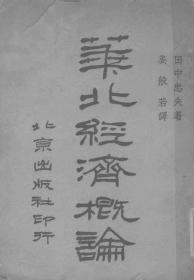 田中忠夫著
姜般若譯
華北經濟概論
北京出版社印行